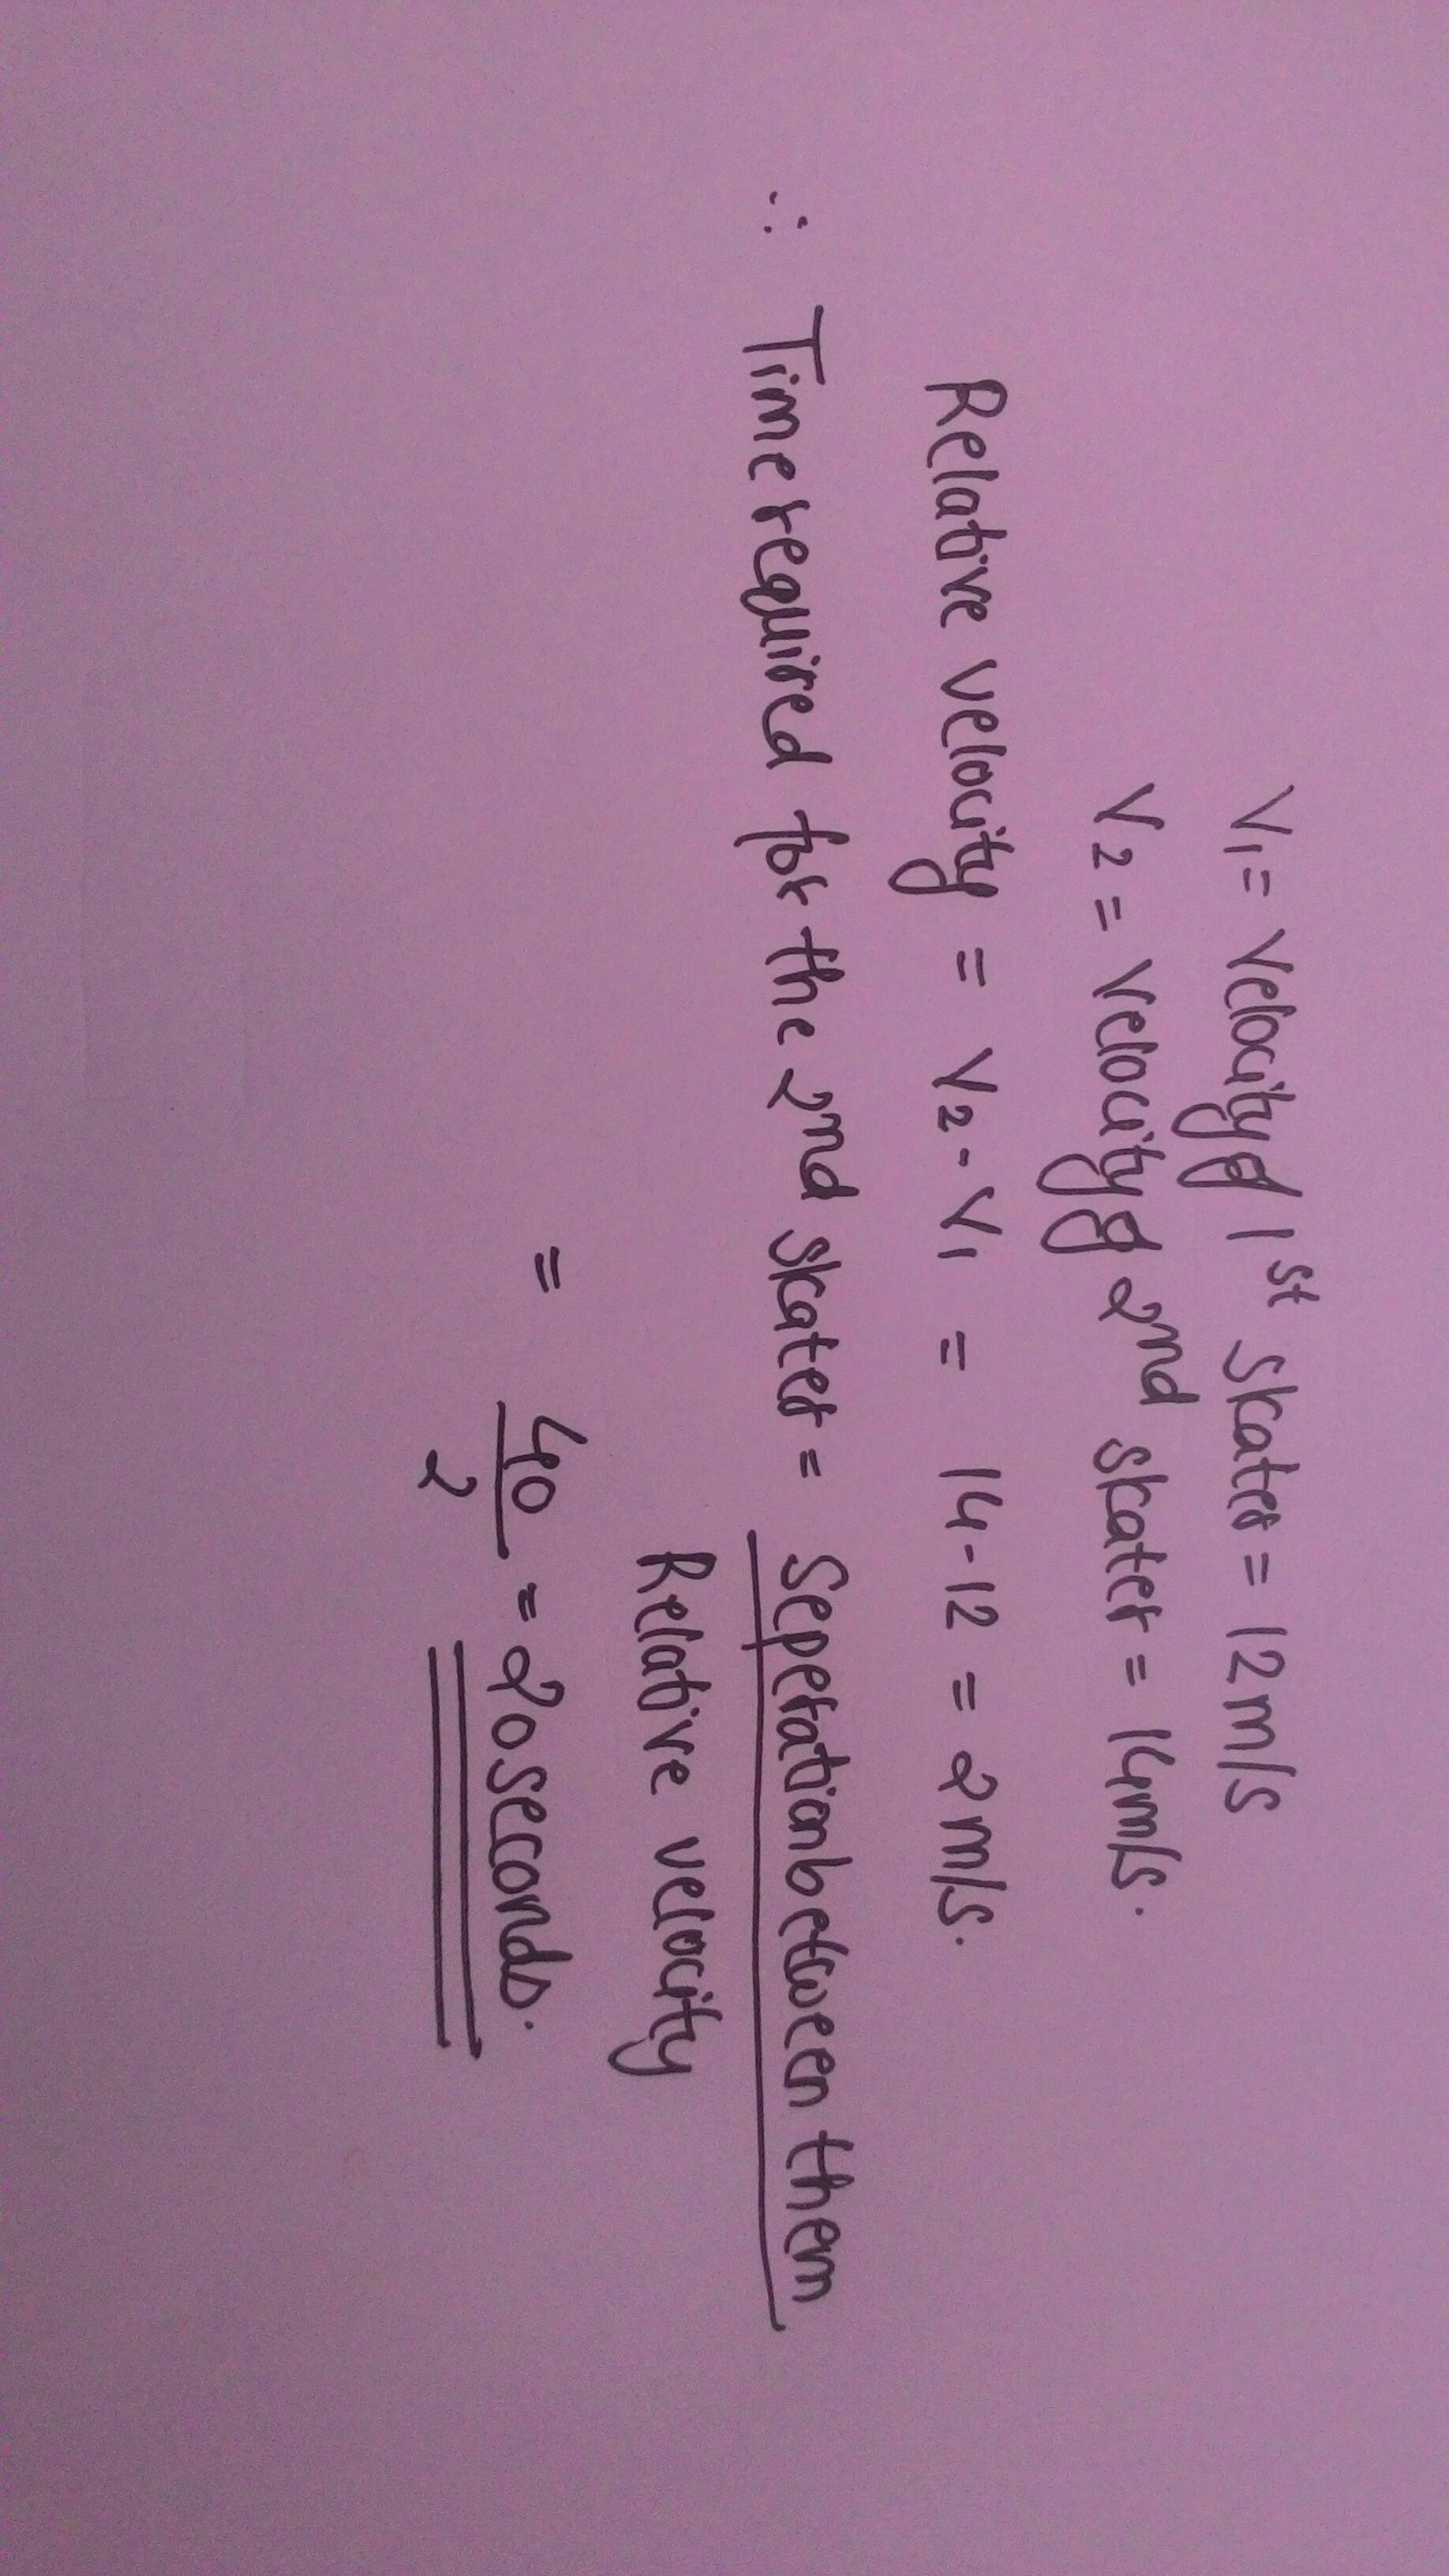 V1 = Velocity of 1st Skater = 12m/s
V2 = Velocity of 2nd skater = 14m/s.
Relative velocity = V2 - V1 = 14-12 = 2m/s.
∴ Time required for the 2nd skater = Seperation between them
Relative velocity
= 40 = 20 seconds.
2